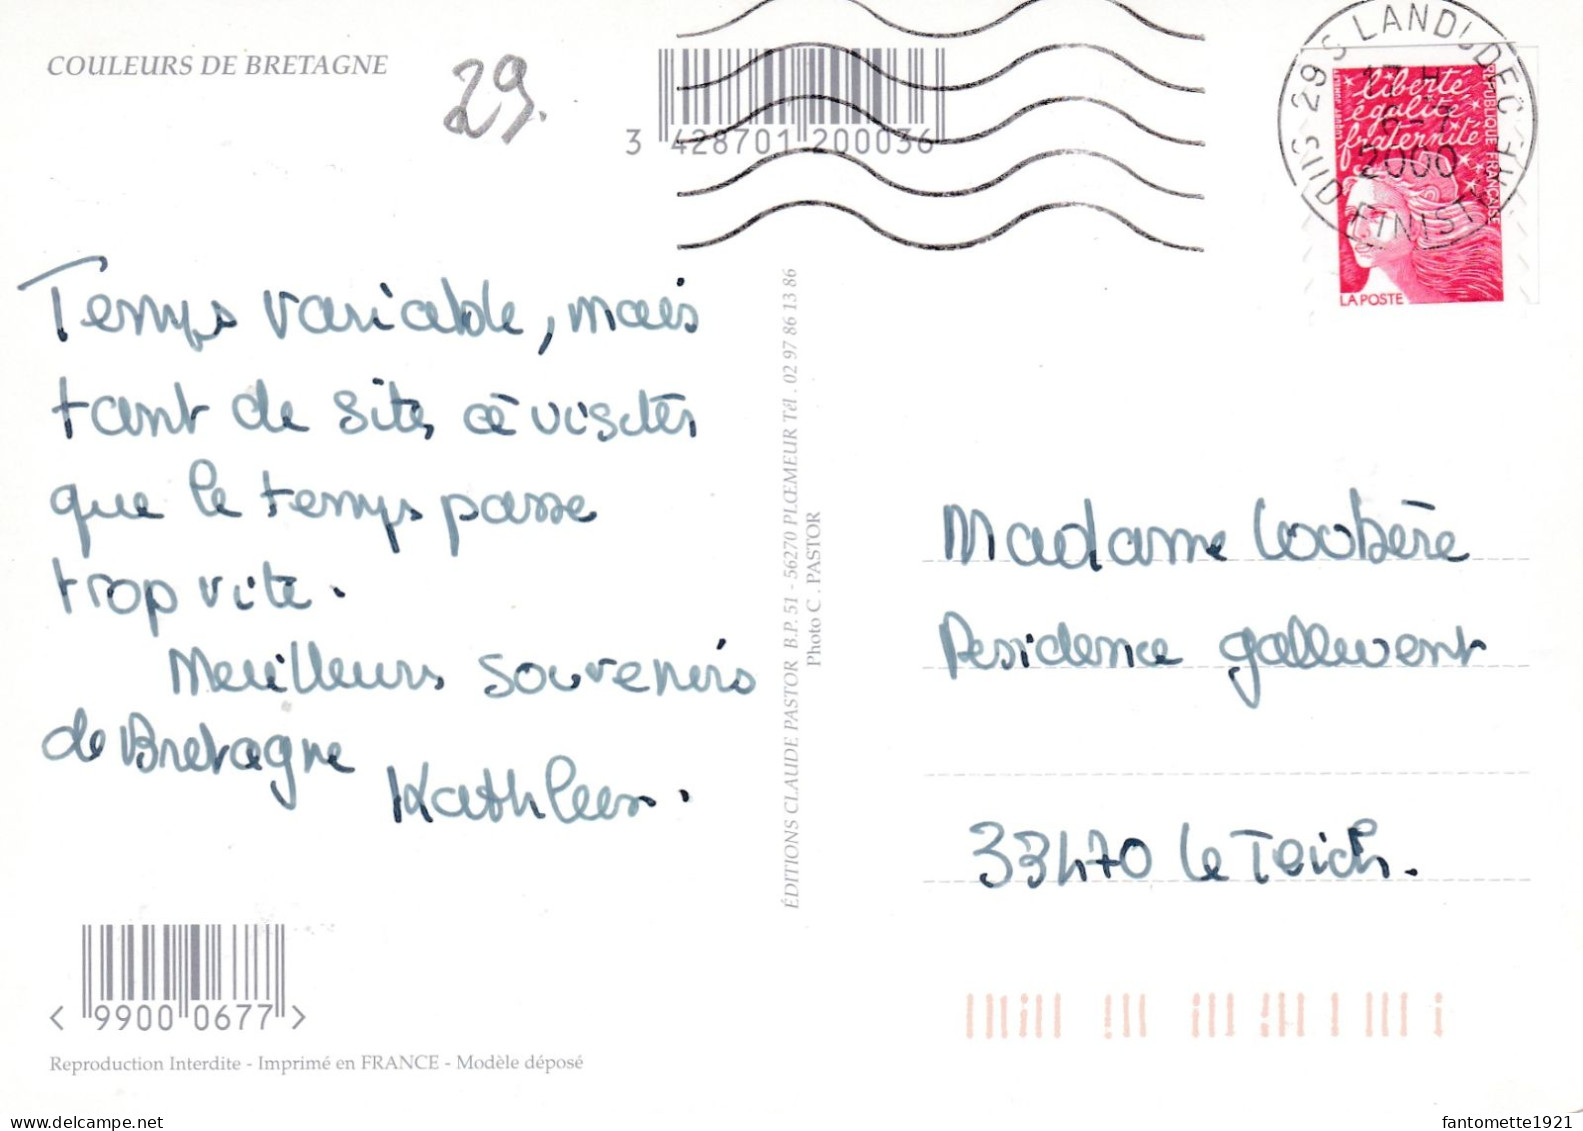 COULEURS DE BRETAGNE
29.
3 428701 200036
S 29 S LANDUDEC
17 H
6-7
2000
SUD FINISTERE
liberté
égalité
fraternité
RÉPUBLIQUE FRANÇAISE
LA POSTE
Temps variable, mais
tant de sites à visiter
que le temps passe
trop vite.
Meilleurs souvenirs
de Bretagne
Kathleen.
ÉDITIONS CLAUDE PASTOR B.P. 51 - 56270 PLŒMEUR Tél . 02 97 86 13 86
Photo C . PASTOR
Madame Loubère
Résidence
33470 Le Teich.
< 9900 0677 >
Reproduction Interdite - Imprimé en FRANCE - Modèle déposé
fantomette1921